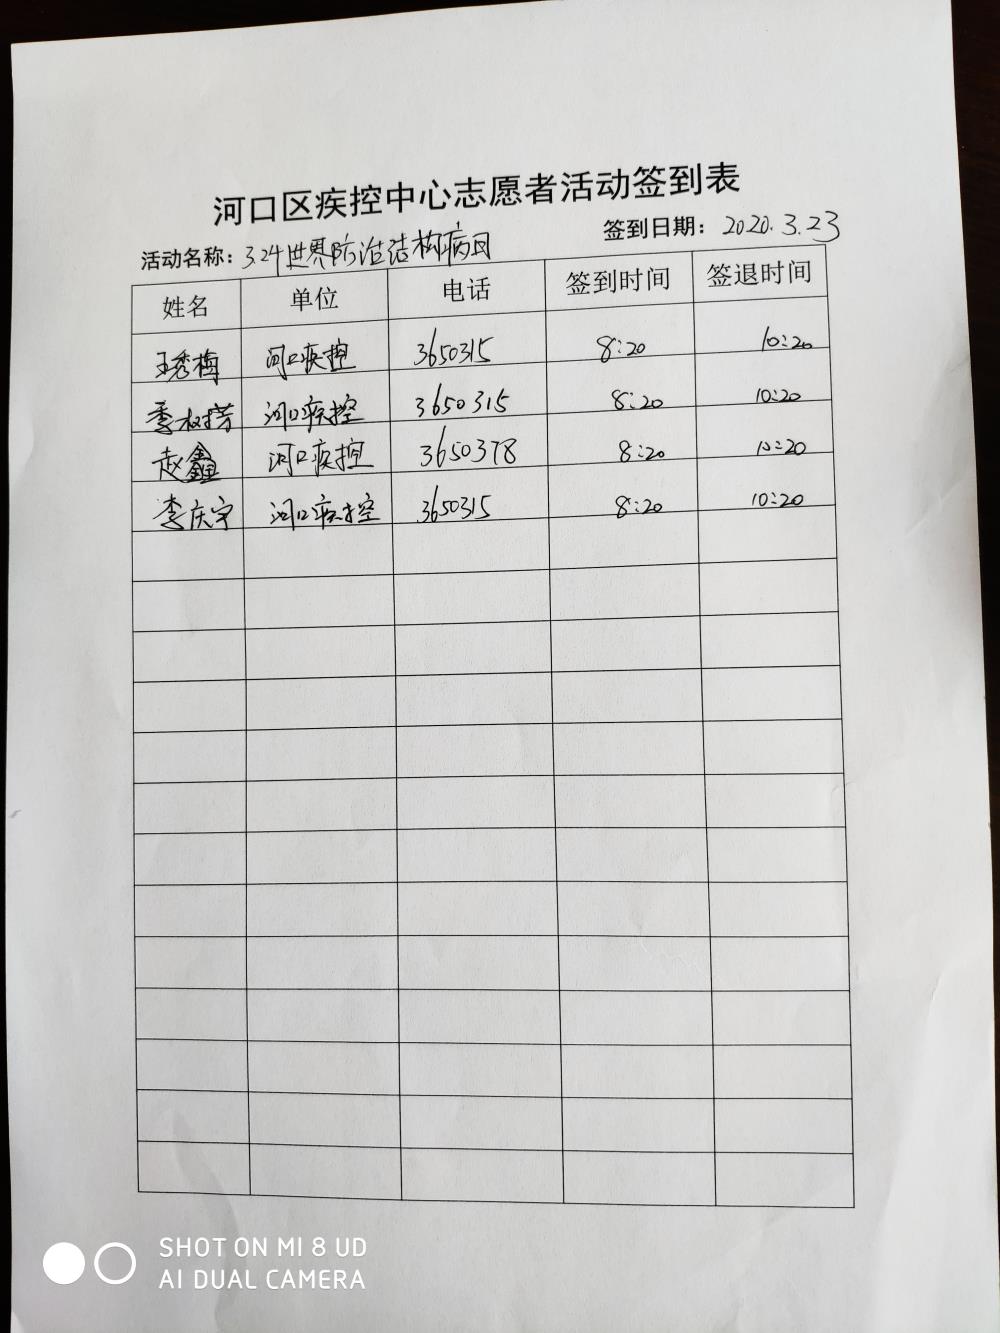 河口区疾控中心志愿者活动签到表
活动名称：3.24世界防治结构病日 签到日期：2020.3.23
姓名 单位 电话 签到时间 签退时间
王秀梅 河口疾控 3650315 8:20 10:20
河口疾控 3650315 8:20 10:20
赵鑫 河口疾控 3650378 8:20 10:20
李庆宇 河口疾控 3650315 8:20 10:20
SHOT ON MI 8 UD
AI DUAL CAMERA